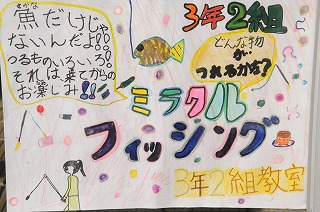 魚だけじゃ
ないんだよ!!
つるものいろいろ!
それは来てからの
お楽しみ!!
3年2組
どんな物
が
つれるかな?
ミラクル
フィッシング
3年2組教室